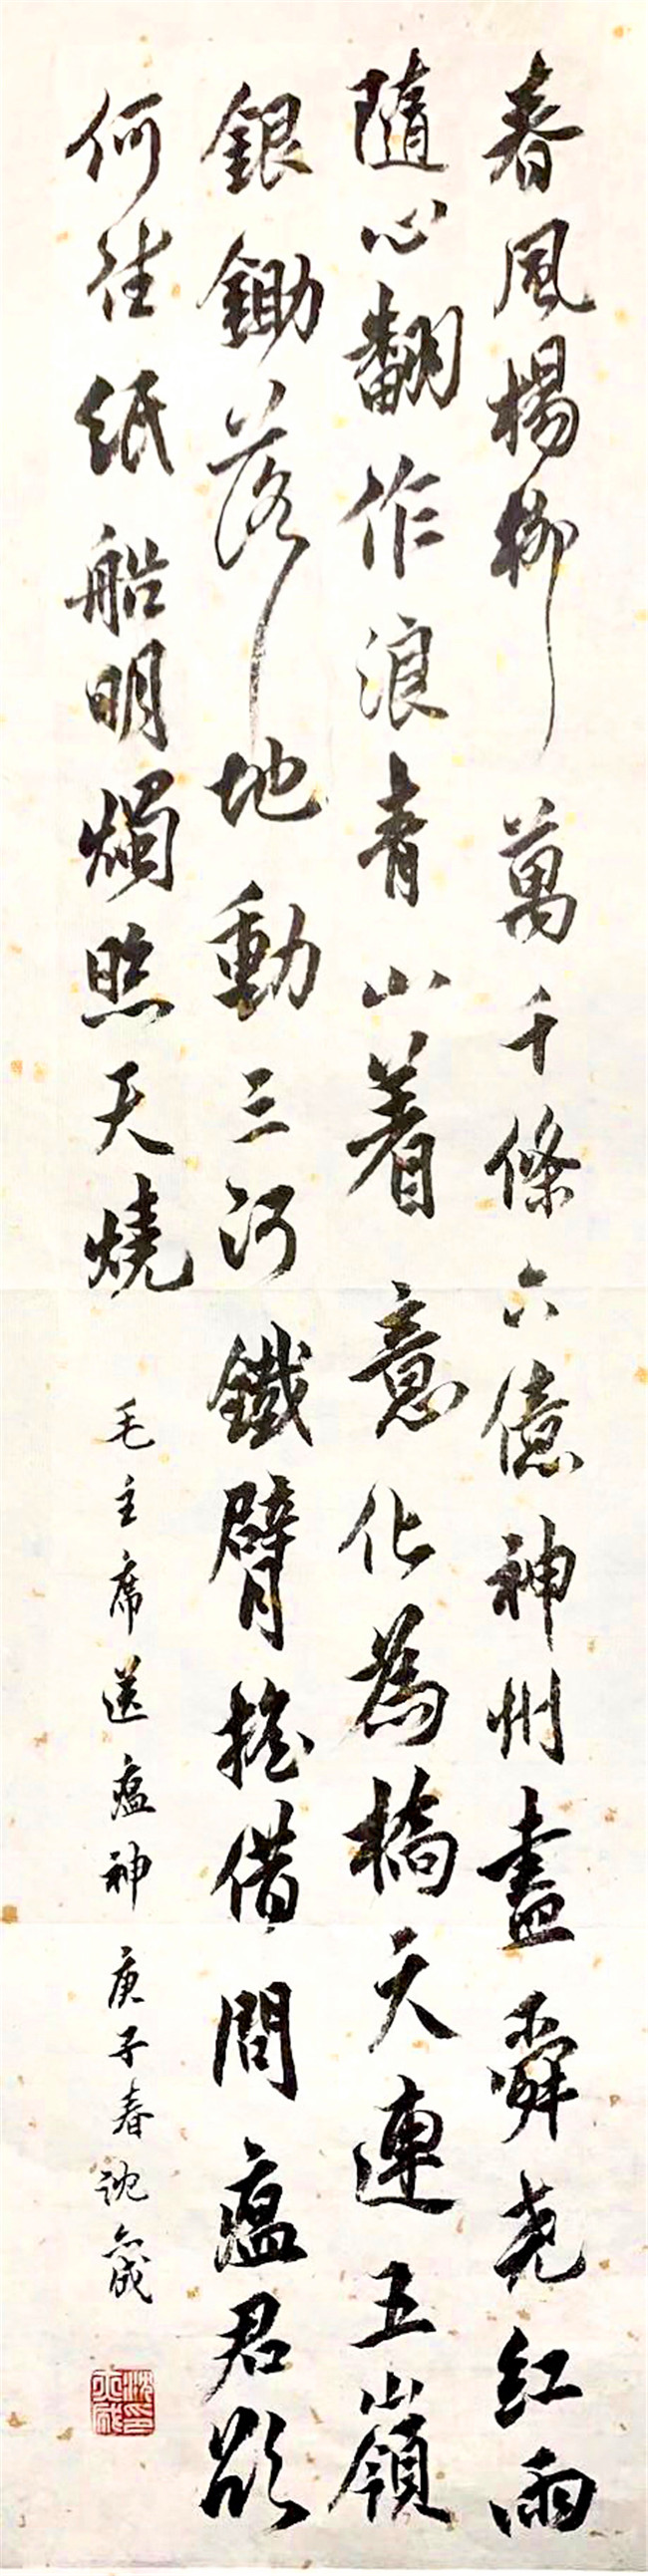 春風楊柳萬千條六億神州盡舜堯紅雨
隨心翻作浪青山着意化為橋天連五嶺
銀鋤落地動三河鐵臂搖借問瘟君欲
何往紙船明燭照天燒
毛主席送瘟神 庚子春沈